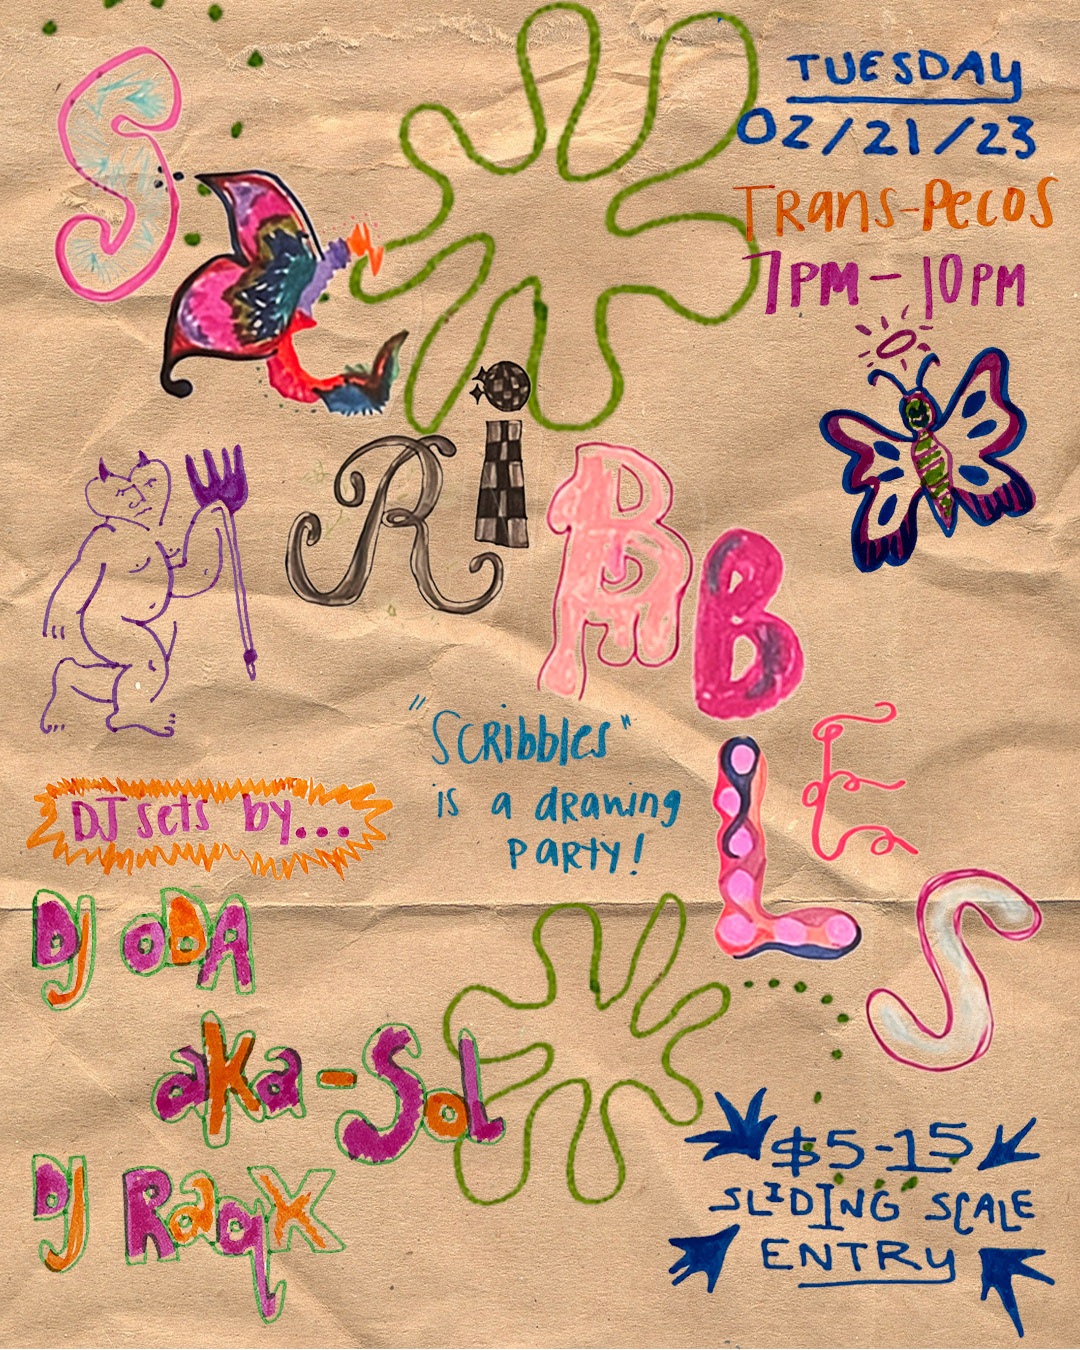 TUESDAY
02/21/23
TRANS-PECOS
7PM-10PM
SCRIBBLES
"SCRibbles"
is a dRawing
PARTY!
DJ sets by...
DJ ODA
aka-Sol
DJ RaqX
$5-15
SLIDING SCALE
ENTRY